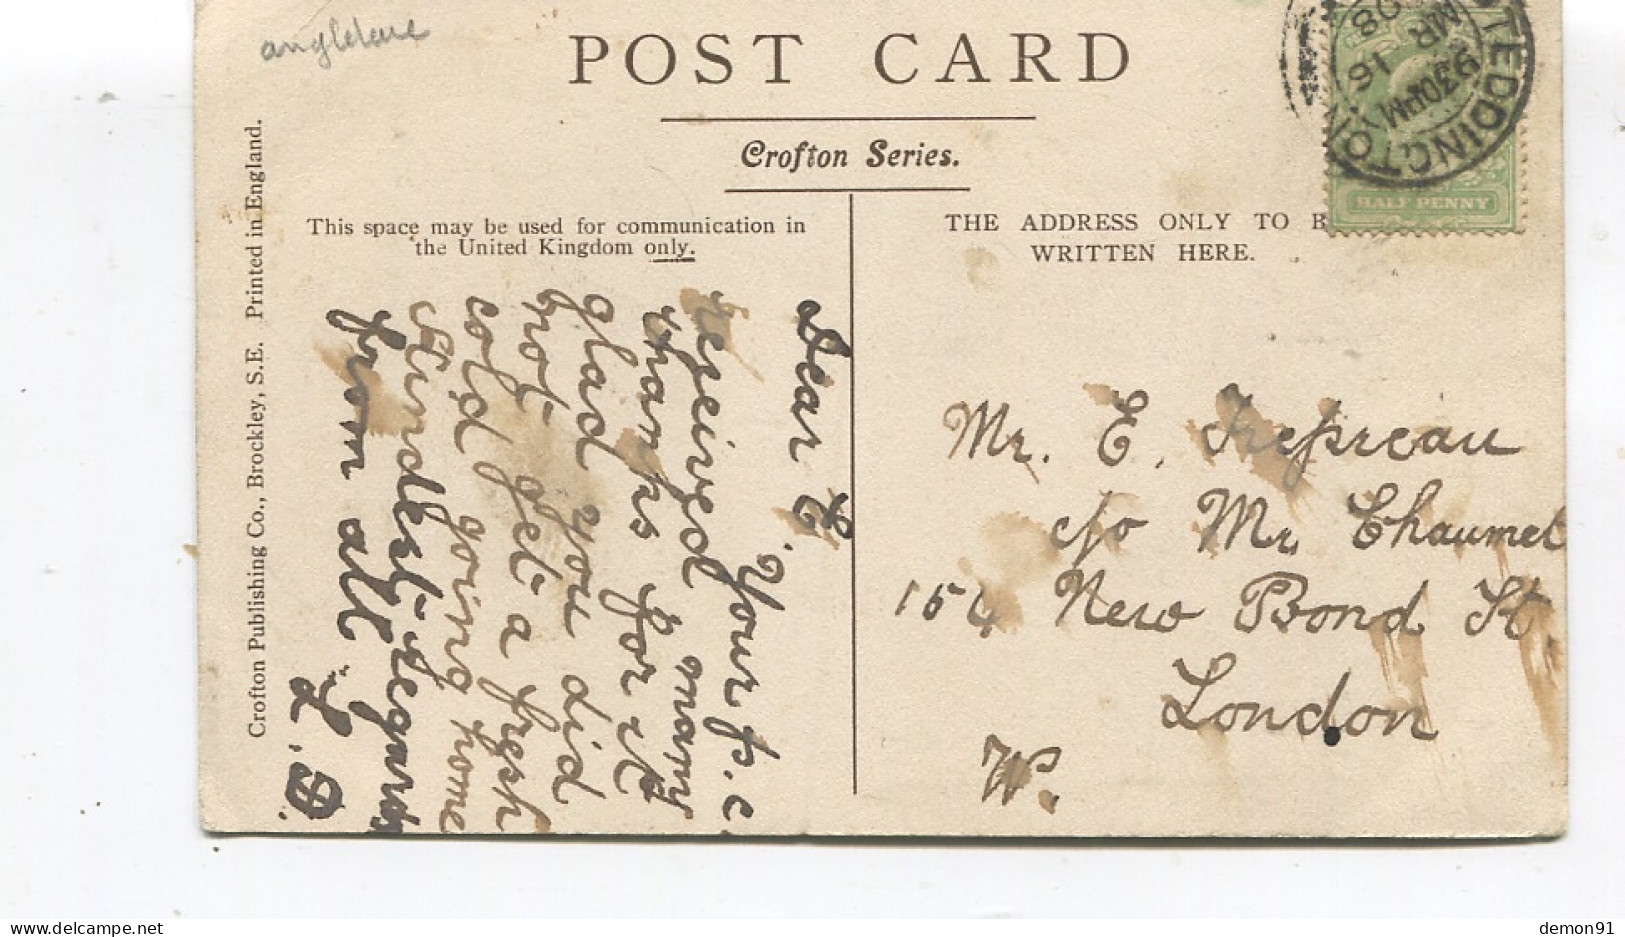 anglelaue
POST CARD
Crofton Series.
This space may be used for communication in
the United Kingdom only.
THE ADDRESS ONLY TO B
WRITTEN HERE.
Crofton Publishing Co., Brockley, S.E. Printed in England.
TEDDINGTON
9 30 PM
MR 16
08
HALF PENNY
Dear E.
Your p.c
reseived many
thanks for it
glad you did
not get a fresh
cold going home
kindest regards
from all
L. D.
Mr. E. Trepreau
c/o Mr. Chaumet
154 New Bond St.
London
W.
delcampe.net
demon91